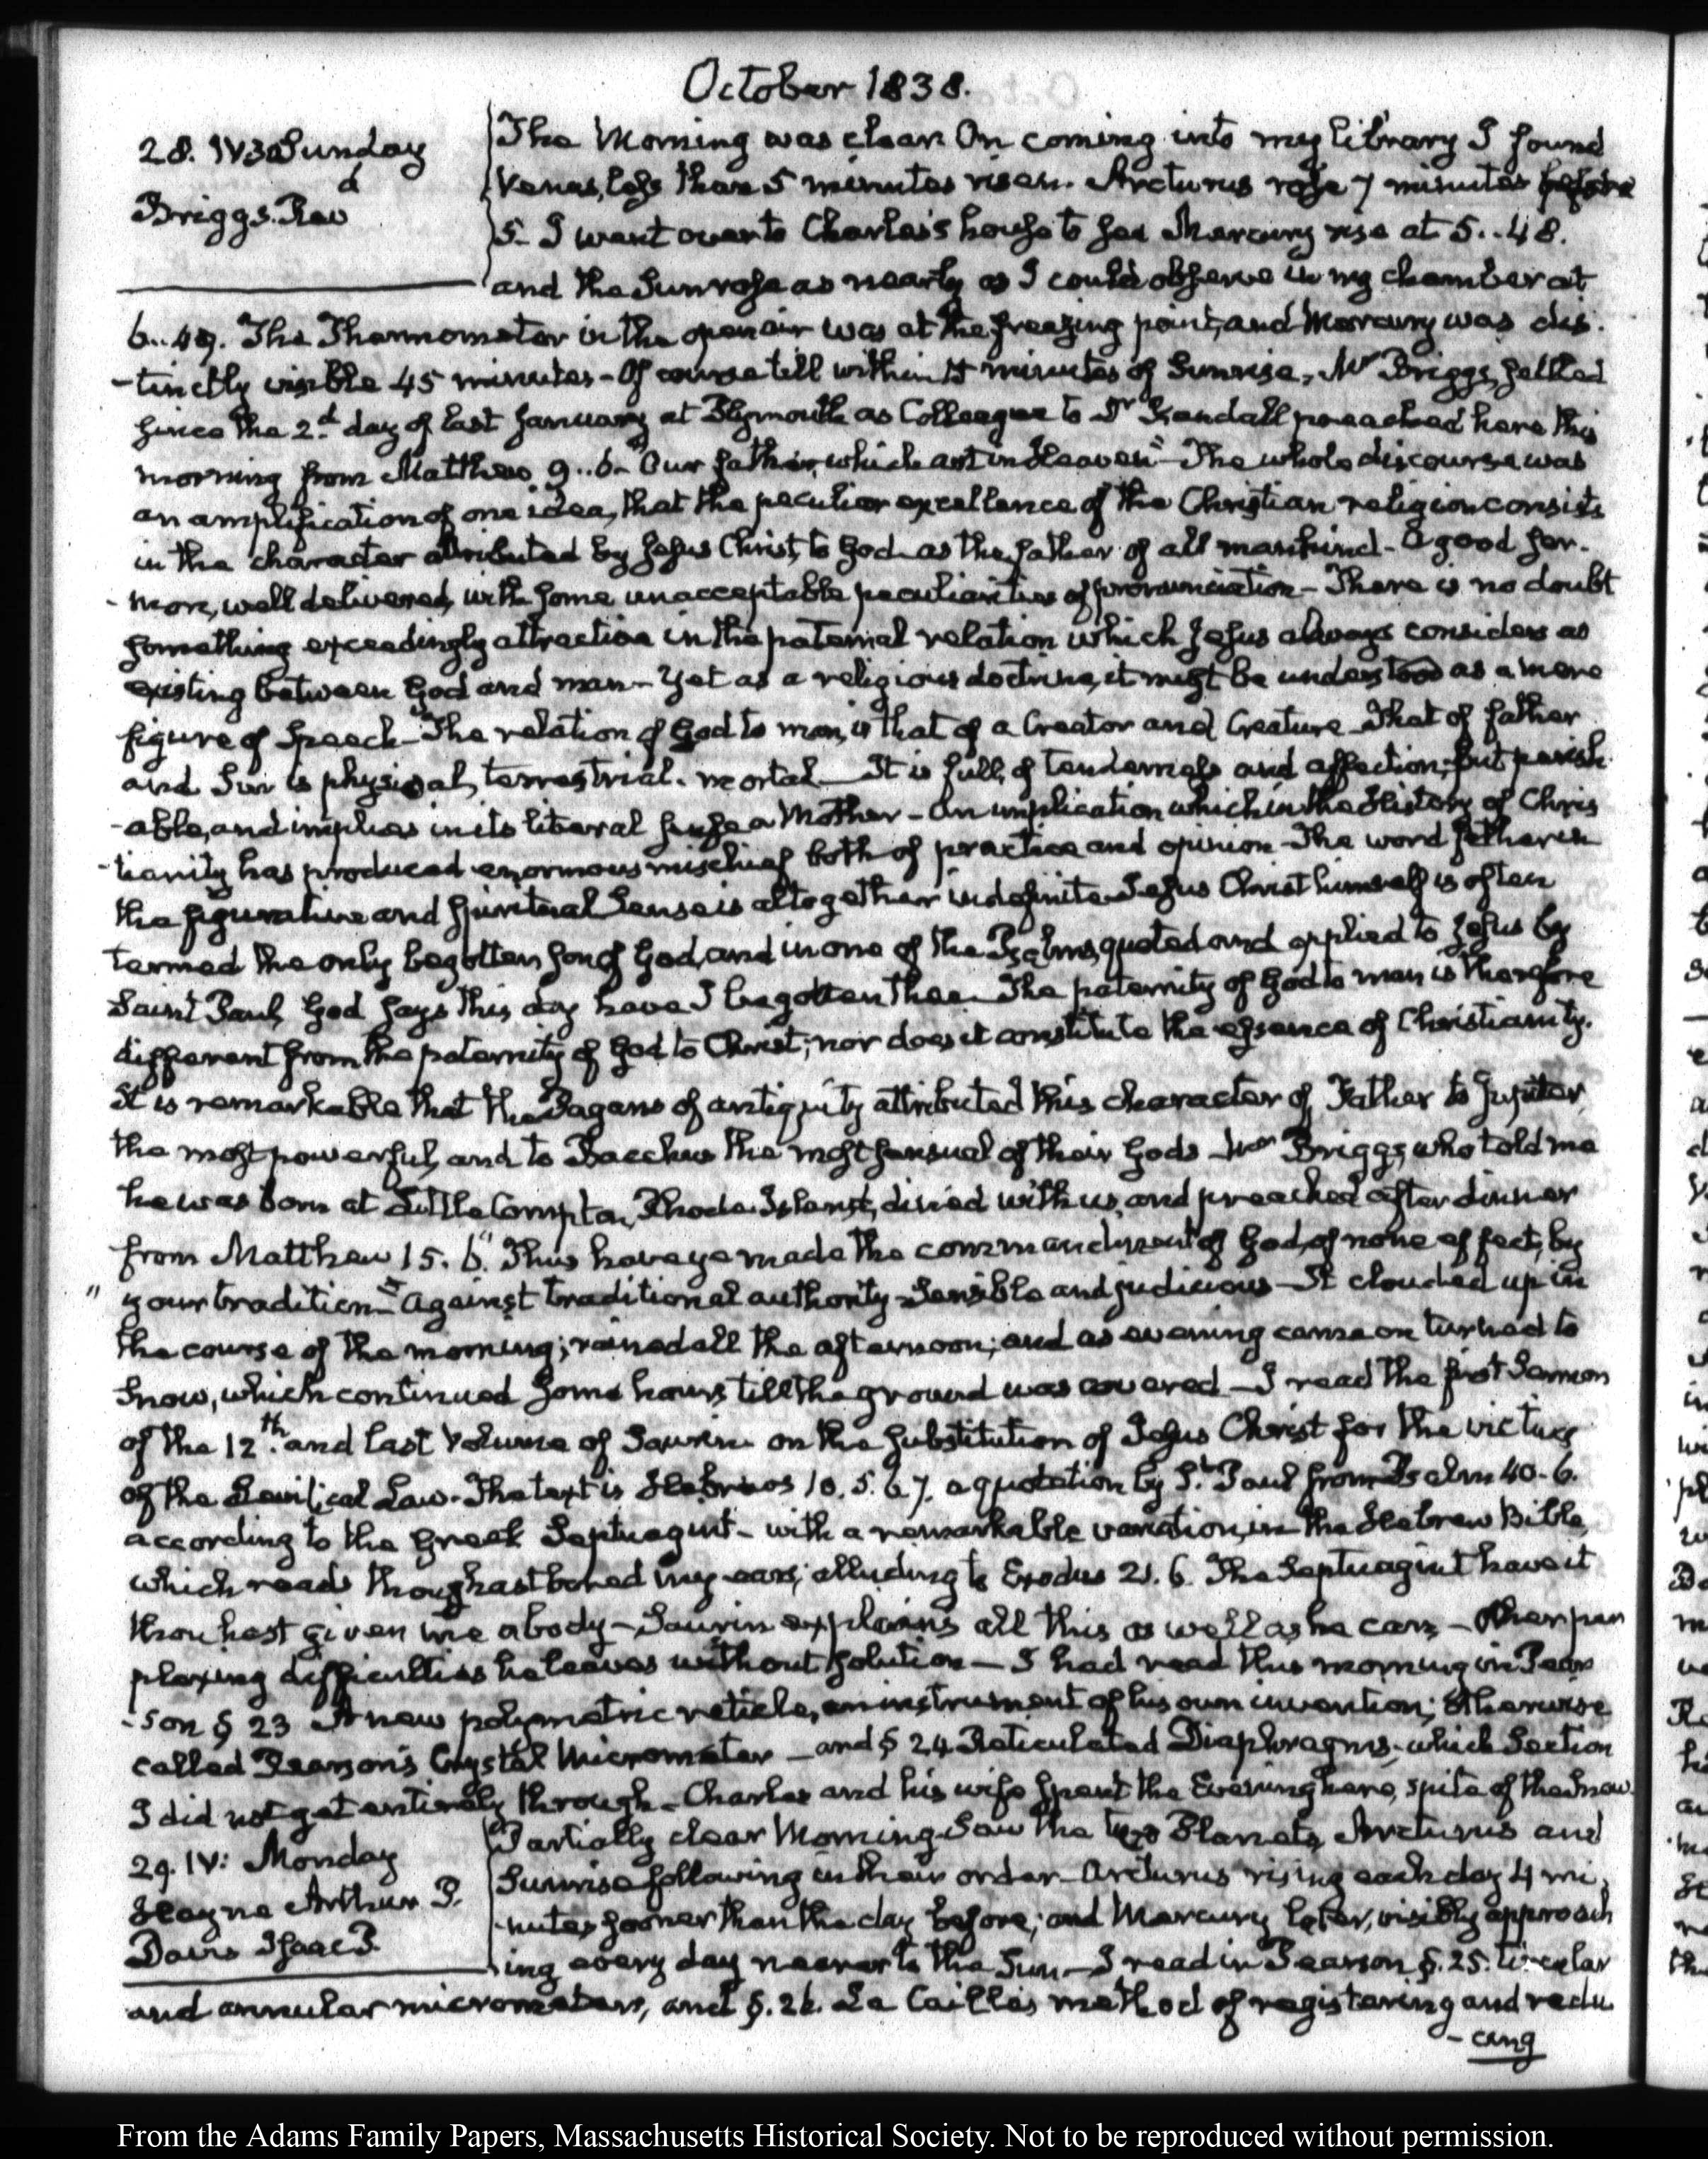 October 1838.
28. IV30 Sunday
Briggs. Revd
The Morning was clear On coming into my library I found
Venus, less than 5 minutes risen. Arcturus rose 7 minutes before
5. I went over to Charles's house to see Mercury rise at 5..48.
and the Sun rose as nearly as I could observe in my chamber at
6..49. The Thermometer in the open air was at the freezing point, and Mercury was dis-
-tinctly visible 45 minutes - Of course till within 15 minutes of Sunrise, Mr Briggs, settled
since the 2d day of last January at Plymouth as Colleague to Dr Kendall preached here this
morning from Matthew 9..6. "Our father, which art in Heaven" - The whole discourse was
an amplification of one idea, that the peculiar excellence of the Christian religion consists
in the character attributed by Jesus Christ, to God as the father of all mankind - a good ser-
-mon, well delivered, with some unacceptable peculiarities of pronunciation - There is no doubt
something exceedingly attractive in the paternal relation which Jesus always considers as
existing between God and man - Yet as a religious doctrine, it must be understood as a mere
figure of Speech - The relation of God to man, is that of a Creator and Creature - That of father
and Son is physical, terrestrial, mortal - It is full of tenderness and affection; but perish-
-able, and implies in its literal sense a Mother - An implication which in the History of Chris
-tianity has produced enormous mischief both of practice and opinion - The word father in
the figurative and spiritual Sense is altogether indefinite - Jesus Christ himself is often
termed the only begotten Son of God, and in one of the Psalms, quoted and applied to Jesus by
Saint Paul, God says this day have I begotten thee - The paternity of God to man is therefore
different from the paternity of God to Christ; nor does it constitute the essence of Christianity.
It is remarkable that the Pagans of antiquity attributed this character of Father to Jupiter,
the most powerful, and to Bacchus the most sensual of their Gods - Mr Briggs, who told me
he was born at Little Compton, Rhode-Island, dined with us, and preached after dinner
from Matthew 15. 6. "Thus have ye made the commandment of God, of none effect, by
" your tradition" - Against traditional authority - Sensible and judicious - It clouded up in
the course of the morning; rained all the afternoon; and as evening came on turned to
Snow, which continued some hours till the ground was covered - I read the first Sermon
of the 12th. and last Volume of Saurin on the substitution of Jesus Christ for the victims
of the Levitical Law. The text is Hebrews 10. 5. 6. 7. a quotation by St. Paul from Psalm 40. 6.
according to the Greek Septuagint - with a remarkable variation, in the Hebrew Bible,
which reads thou hast bored my ears; alluding to Exodus 21. 6. The Septuagint have it
thou hast given me a body - Saurin explains all this as well as he can - Other per
plexing difficulties he leaves without solution - I had read this morning in Pear
-son § 23 A new polymetric reticle, an instrument of his own invention; Otherwise
called Pearson's Crystal Micrometer - and § 24 Reticulated Diaphragms, which Section
I did not get entirely through - Charles and his wife spent the Evening here, spite of the Snow.
29. IV: Monday
Hayne Arthur P.
Davis Isaac P.
Partially clear Morning. Saw the two Planets, Arcturus and
Sunrise following in their order - Arcturus rising each day 4 mi-
-nutes sooner than the day before; and Mercury later, visibly approach
-ing every day nearer to the Sun - I read in Pearson §. 25. Circular
and annular micrometers, and §. 26. La Caille's method of registering and redu
-cing
From the Adams Family Papers, Massachusetts Historical Society. Not to be reproduced without permission.